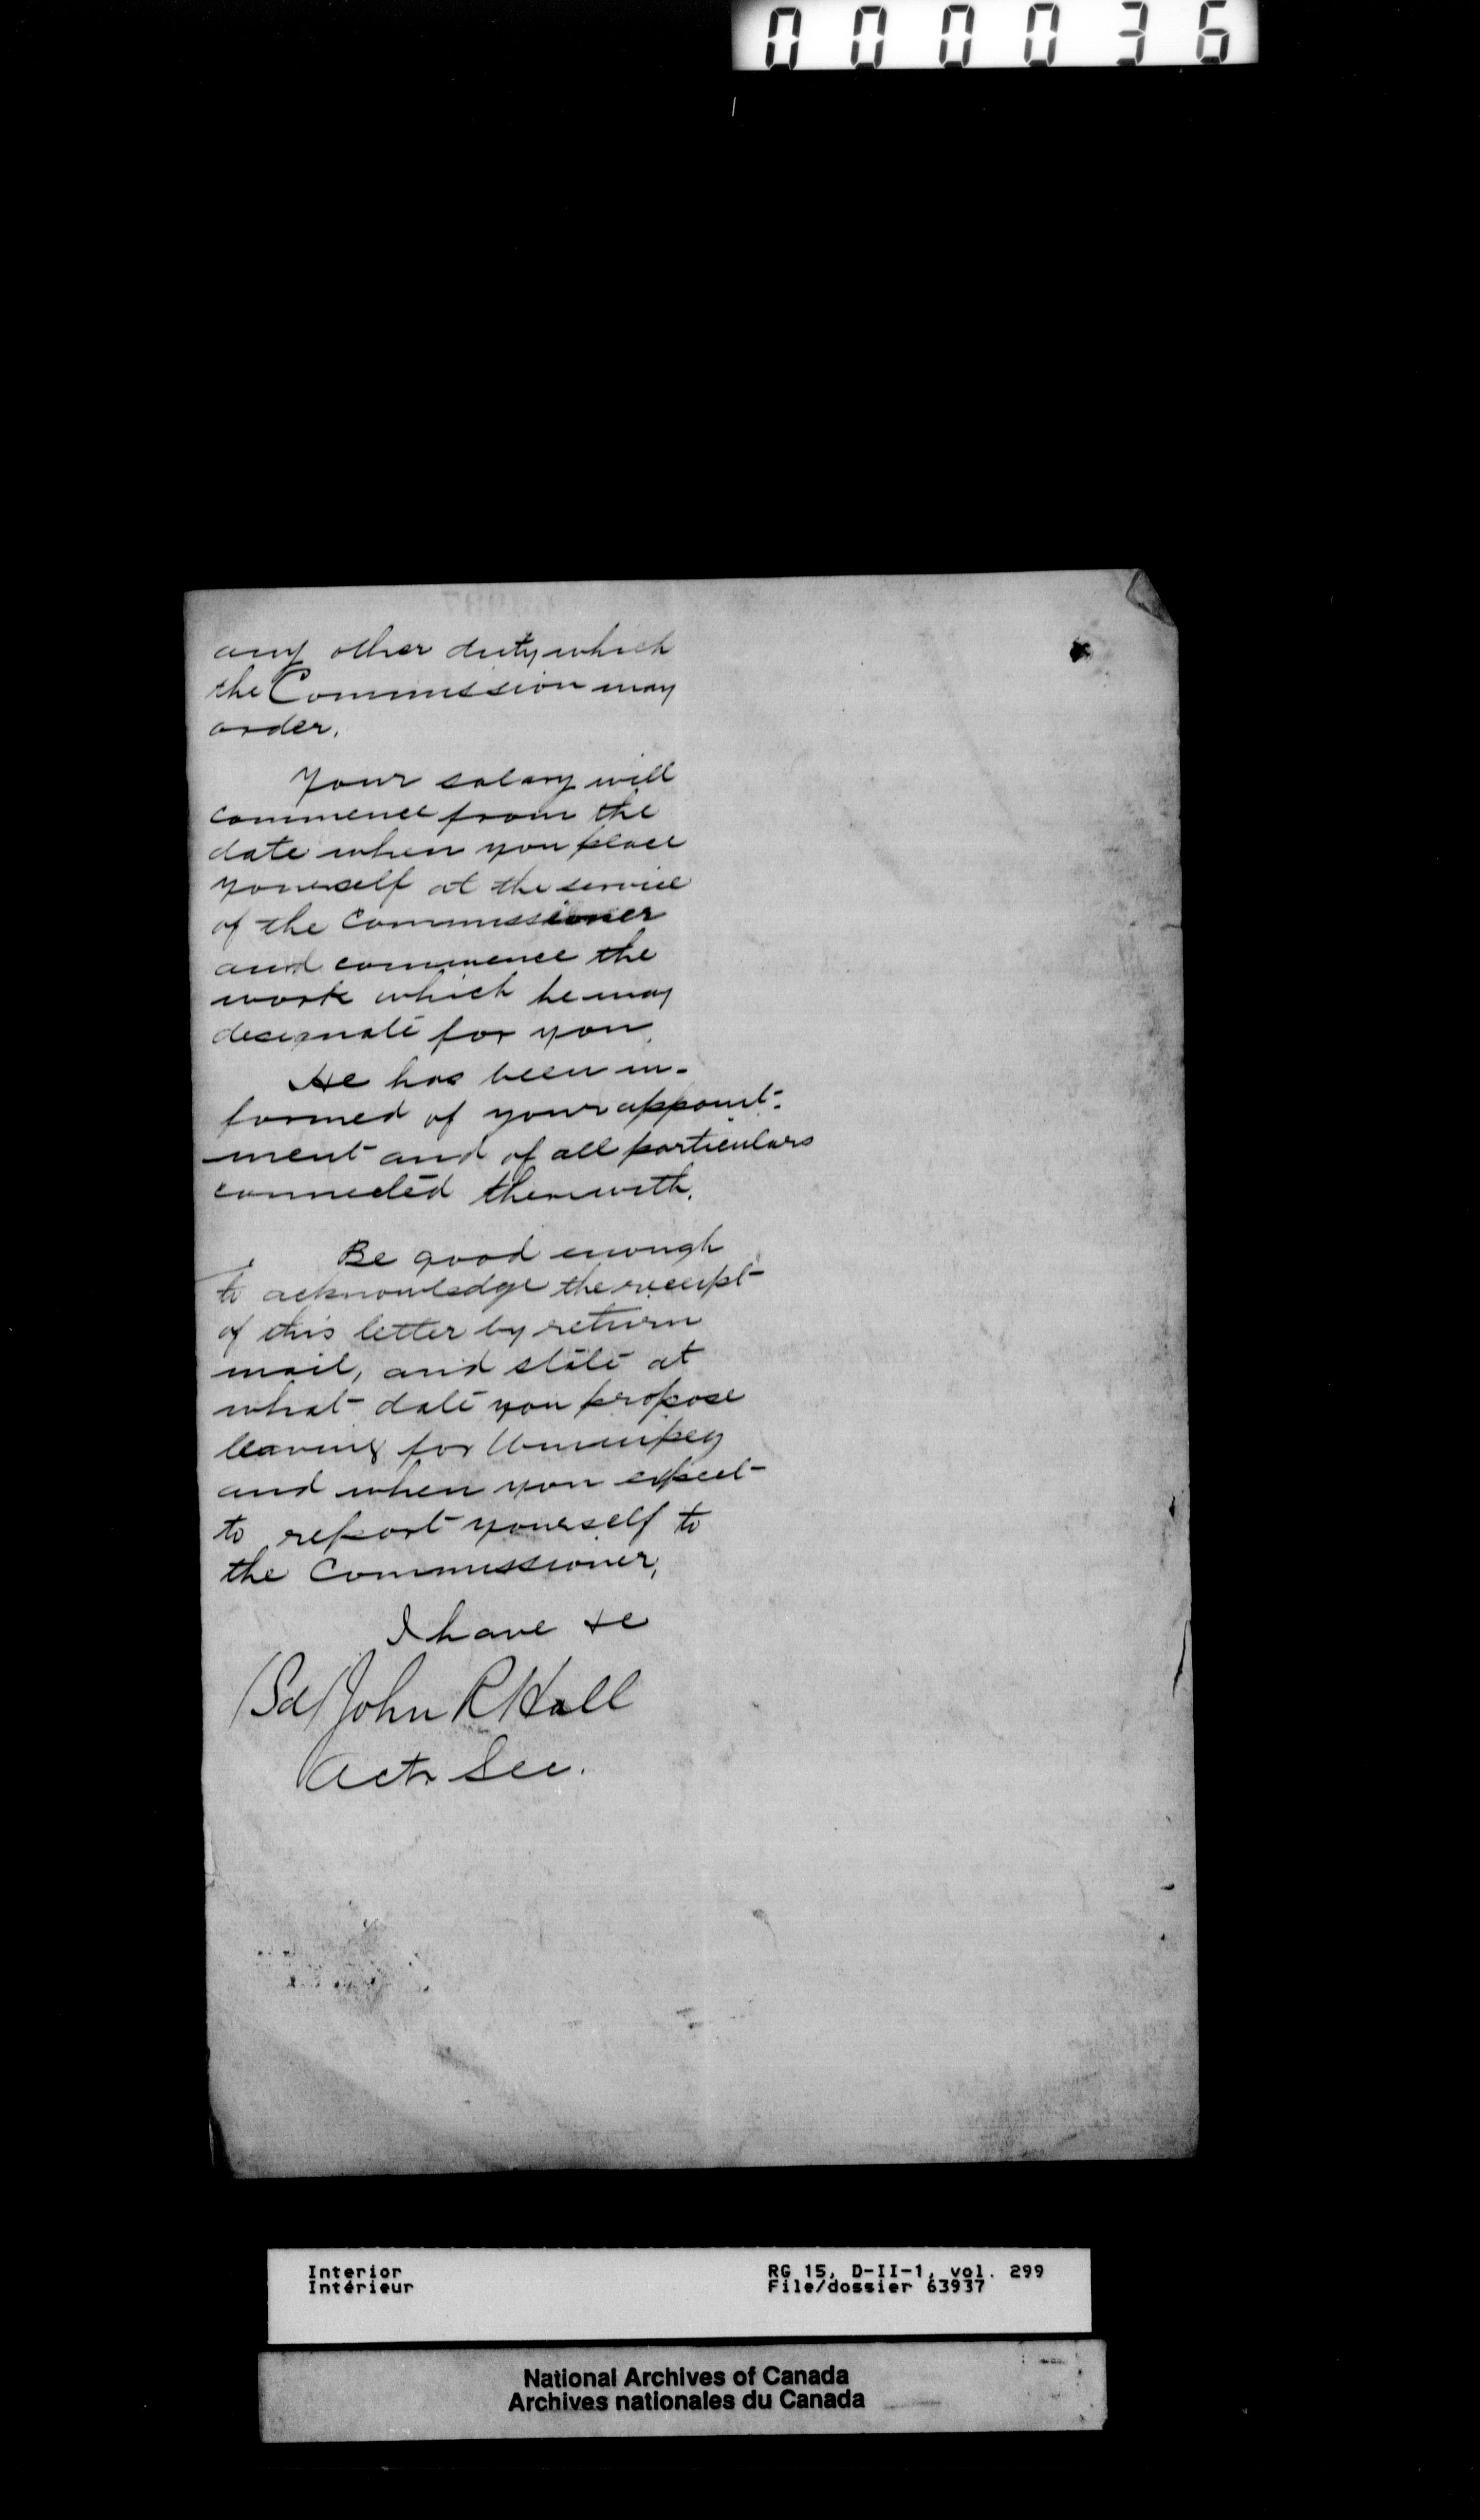 000036
any other duty which
the Commission may
order.
Your salary will
commence from the
date when you place
yourself at the service
of the Commissioner
and commence the
work which he may
designate for you.
He has been in-
formed of your appoint-
ment and of all particulars
connected therewith.
Be good enough
to acknowledge the receipt
of this letter by return
mail, and state at
what date you propose
leaving for Winnipeg
and when you expect
to report yourself to
the Commissioner,
I have &c
(Sd) John R Hall
Actg Sec.
Interior
Intérieur
RG 15, D-II-1, vol. 299
File/dossier 63937
National Archives of Canada
Archives nationales du Canada